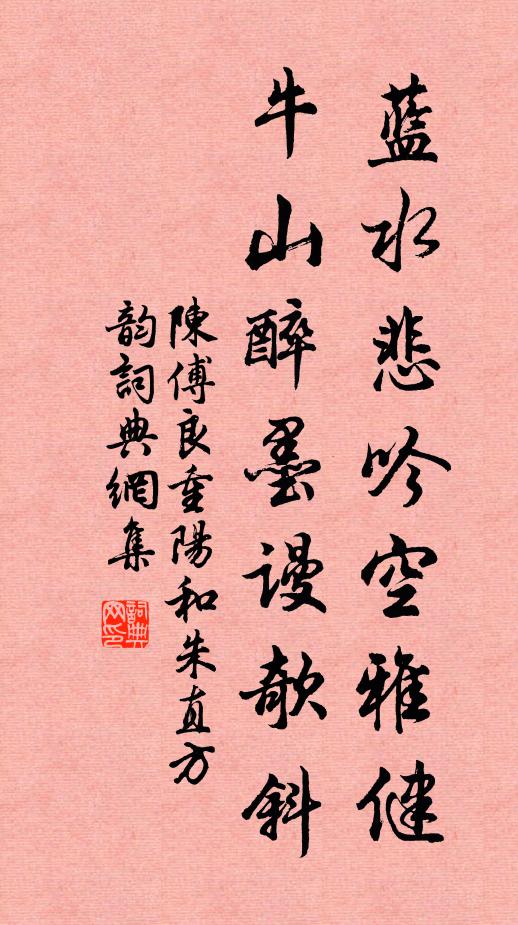 藍水悲吟空雅健
牛山醉墨謾欹斜
陳傅良重陽和朱直方
韵詞典網集
詞典網印